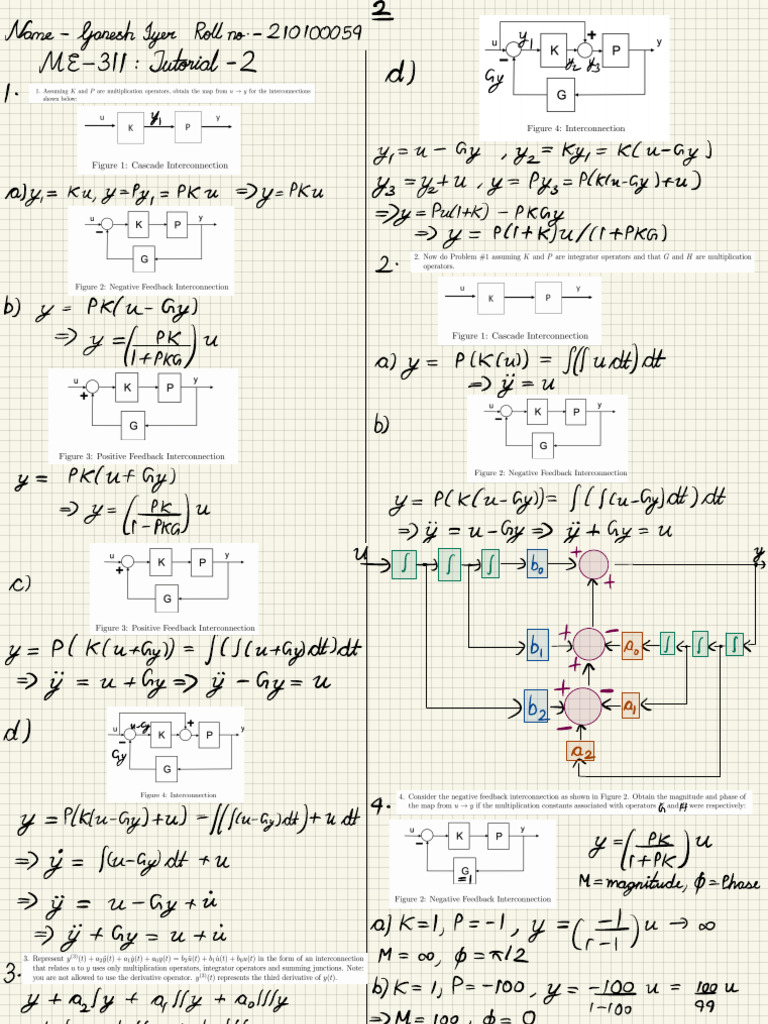 Name - Ganesh Iyer Roll no.- 210100059
ME-311 : Tutorial - 2
1.
1. Assuming K and P are multiplication operators, obtain the map from u → y for the interconnections
shown below:
u K y₁ P y
Figure 1: Cascade Interconnection
a) y₁ = Ku, y = Py₁ = PKu ⇒ y = PKu
u − K P y
G
Figure 2: Negative Feedback Interconnection
b) y = PK(u - Gy)
⇒ y = (PK/(1+PKG)) u
u + K P y
G
Figure 3: Positive Feedback Interconnection
y = PK(u+Gy)
⇒ y = (PK/(1-PKG)) u
c)
u + K P y
G
Figure 3: Positive Feedback Interconnection
y = P(K(u+Gy)) = ∫(∫(u+Gy)dt)dt
⇒ ÿ = u + Gy ⇒ ÿ - Gy = u
d)
u − u-Gy K + P y
Gy G
Figure 4: Interconnection
y = P(K(u-Gy)+u) = ∫(∫(u-Gy)dt)+u dt
⇒ ẏ = ∫(u-Gy)dt + u
⇒ ÿ = u - Gy + u̇
⇒ ÿ + Gy = u + u̇
3.
3. Represent y⁽³⁾(t) + a₂ÿ(t) + a₁ẏ(t) + a₀y(t) = b₂ü(t) + b₁u̇(t) + b₀u(t) in the form of an interconnection
that relates u to y uses only multiplication operators, integrator operators and summing junctions. Note:
you are not allowed to use the derivative operator. y⁽³⁾(t) represents the third derivative of y(t).
y + a₂∫y + a₁∫∫y + a₀∫∫∫y
2
d)
u − y₁ K y₂ + y₃ P y
Gy G
Figure 4: Interconnection
y₁ = u - Gy , y₂ = Ky₁ = K(u-Gy)
y₃ = y₂+u , y = Py₃ = P(K(u-Gy)+u)
⇒ y = Pu(1+K) - PKGy
⇒ y = P(1+K)u/(1+PKG)
2.
2. Now do Problem #1 assuming K and P are integrator operators and that G and H are multiplication
operators.
u K P y
Figure 1: Cascade Interconnection
a) y = P(K(u)) = ∫(∫u dt)dt
⇒ ÿ = u
b)
u − K P y
G
Figure 2: Negative Feedback Interconnection
y = P(K(u-Gy)) = ∫(∫(u-Gy)dt)dt
⇒ ÿ = u-Gy ⇒ ÿ + Gy = u
u ∫ ∫ ∫ b₀ + + y
b₁ + − + a₀ ∫ ∫ ∫
b₂ + − − a₁
a₂
4.
4. Consider the negative feedback interconnection as shown in Figure 2. Obtain the magnitude and phase of
the map from u → y if the multiplication constants associated with operators G and H were respectively:
u − K P y
G =1
Figure 2: Negative Feedback Interconnection
y = (PK/(1+PK)) u
M = magnitude, ϕ = Phase
a) K=1, P=-1 , y = (-1/(1-1)) u → ∞
M = ∞, ϕ = π/2
b) K=1, P=-100 , y = -100/(1-100) u = 100/99 u
⇒ M = 100 , ϕ = 0